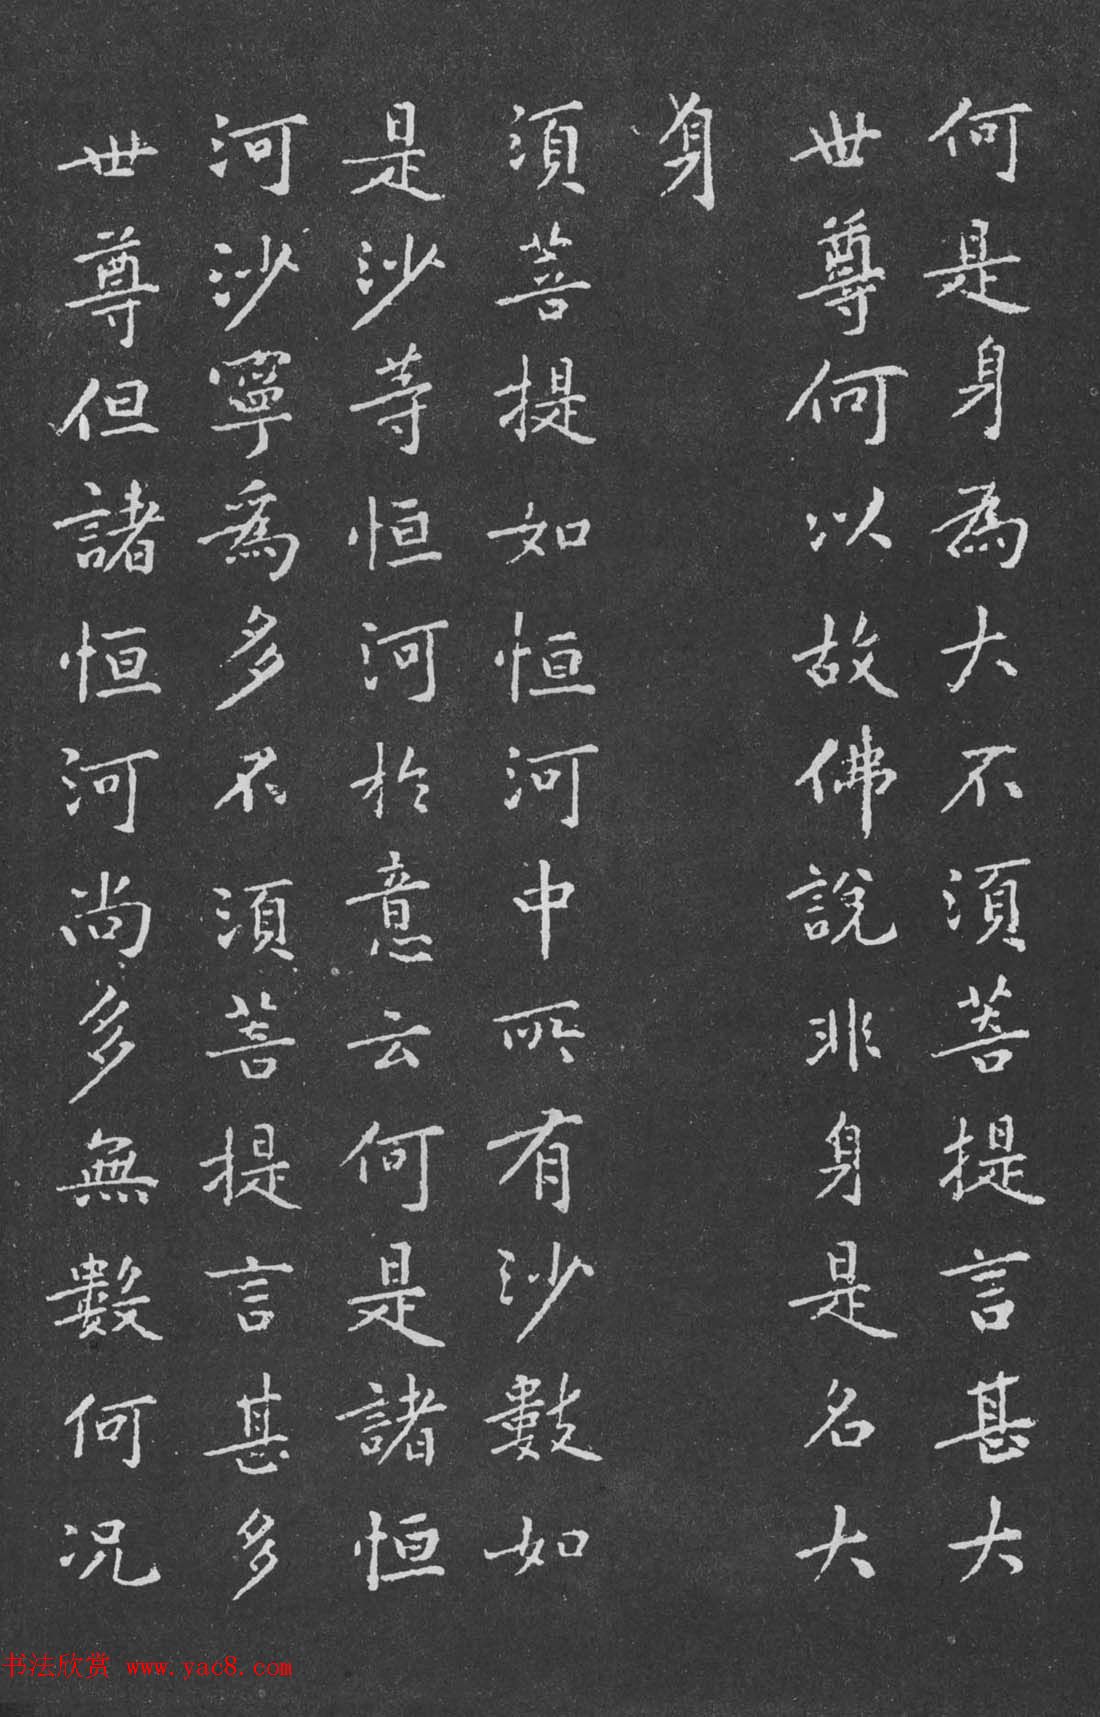 何是身為大不須菩提言甚大
世尊何以故佛說非身是名大
身
須菩提如恒河中所有沙數如
是沙等恒河於意云何是諸恒
河沙寧為多不須菩提言甚多
世尊但諸恒河尚多無數何況
书法欣赏 www.yac8.com